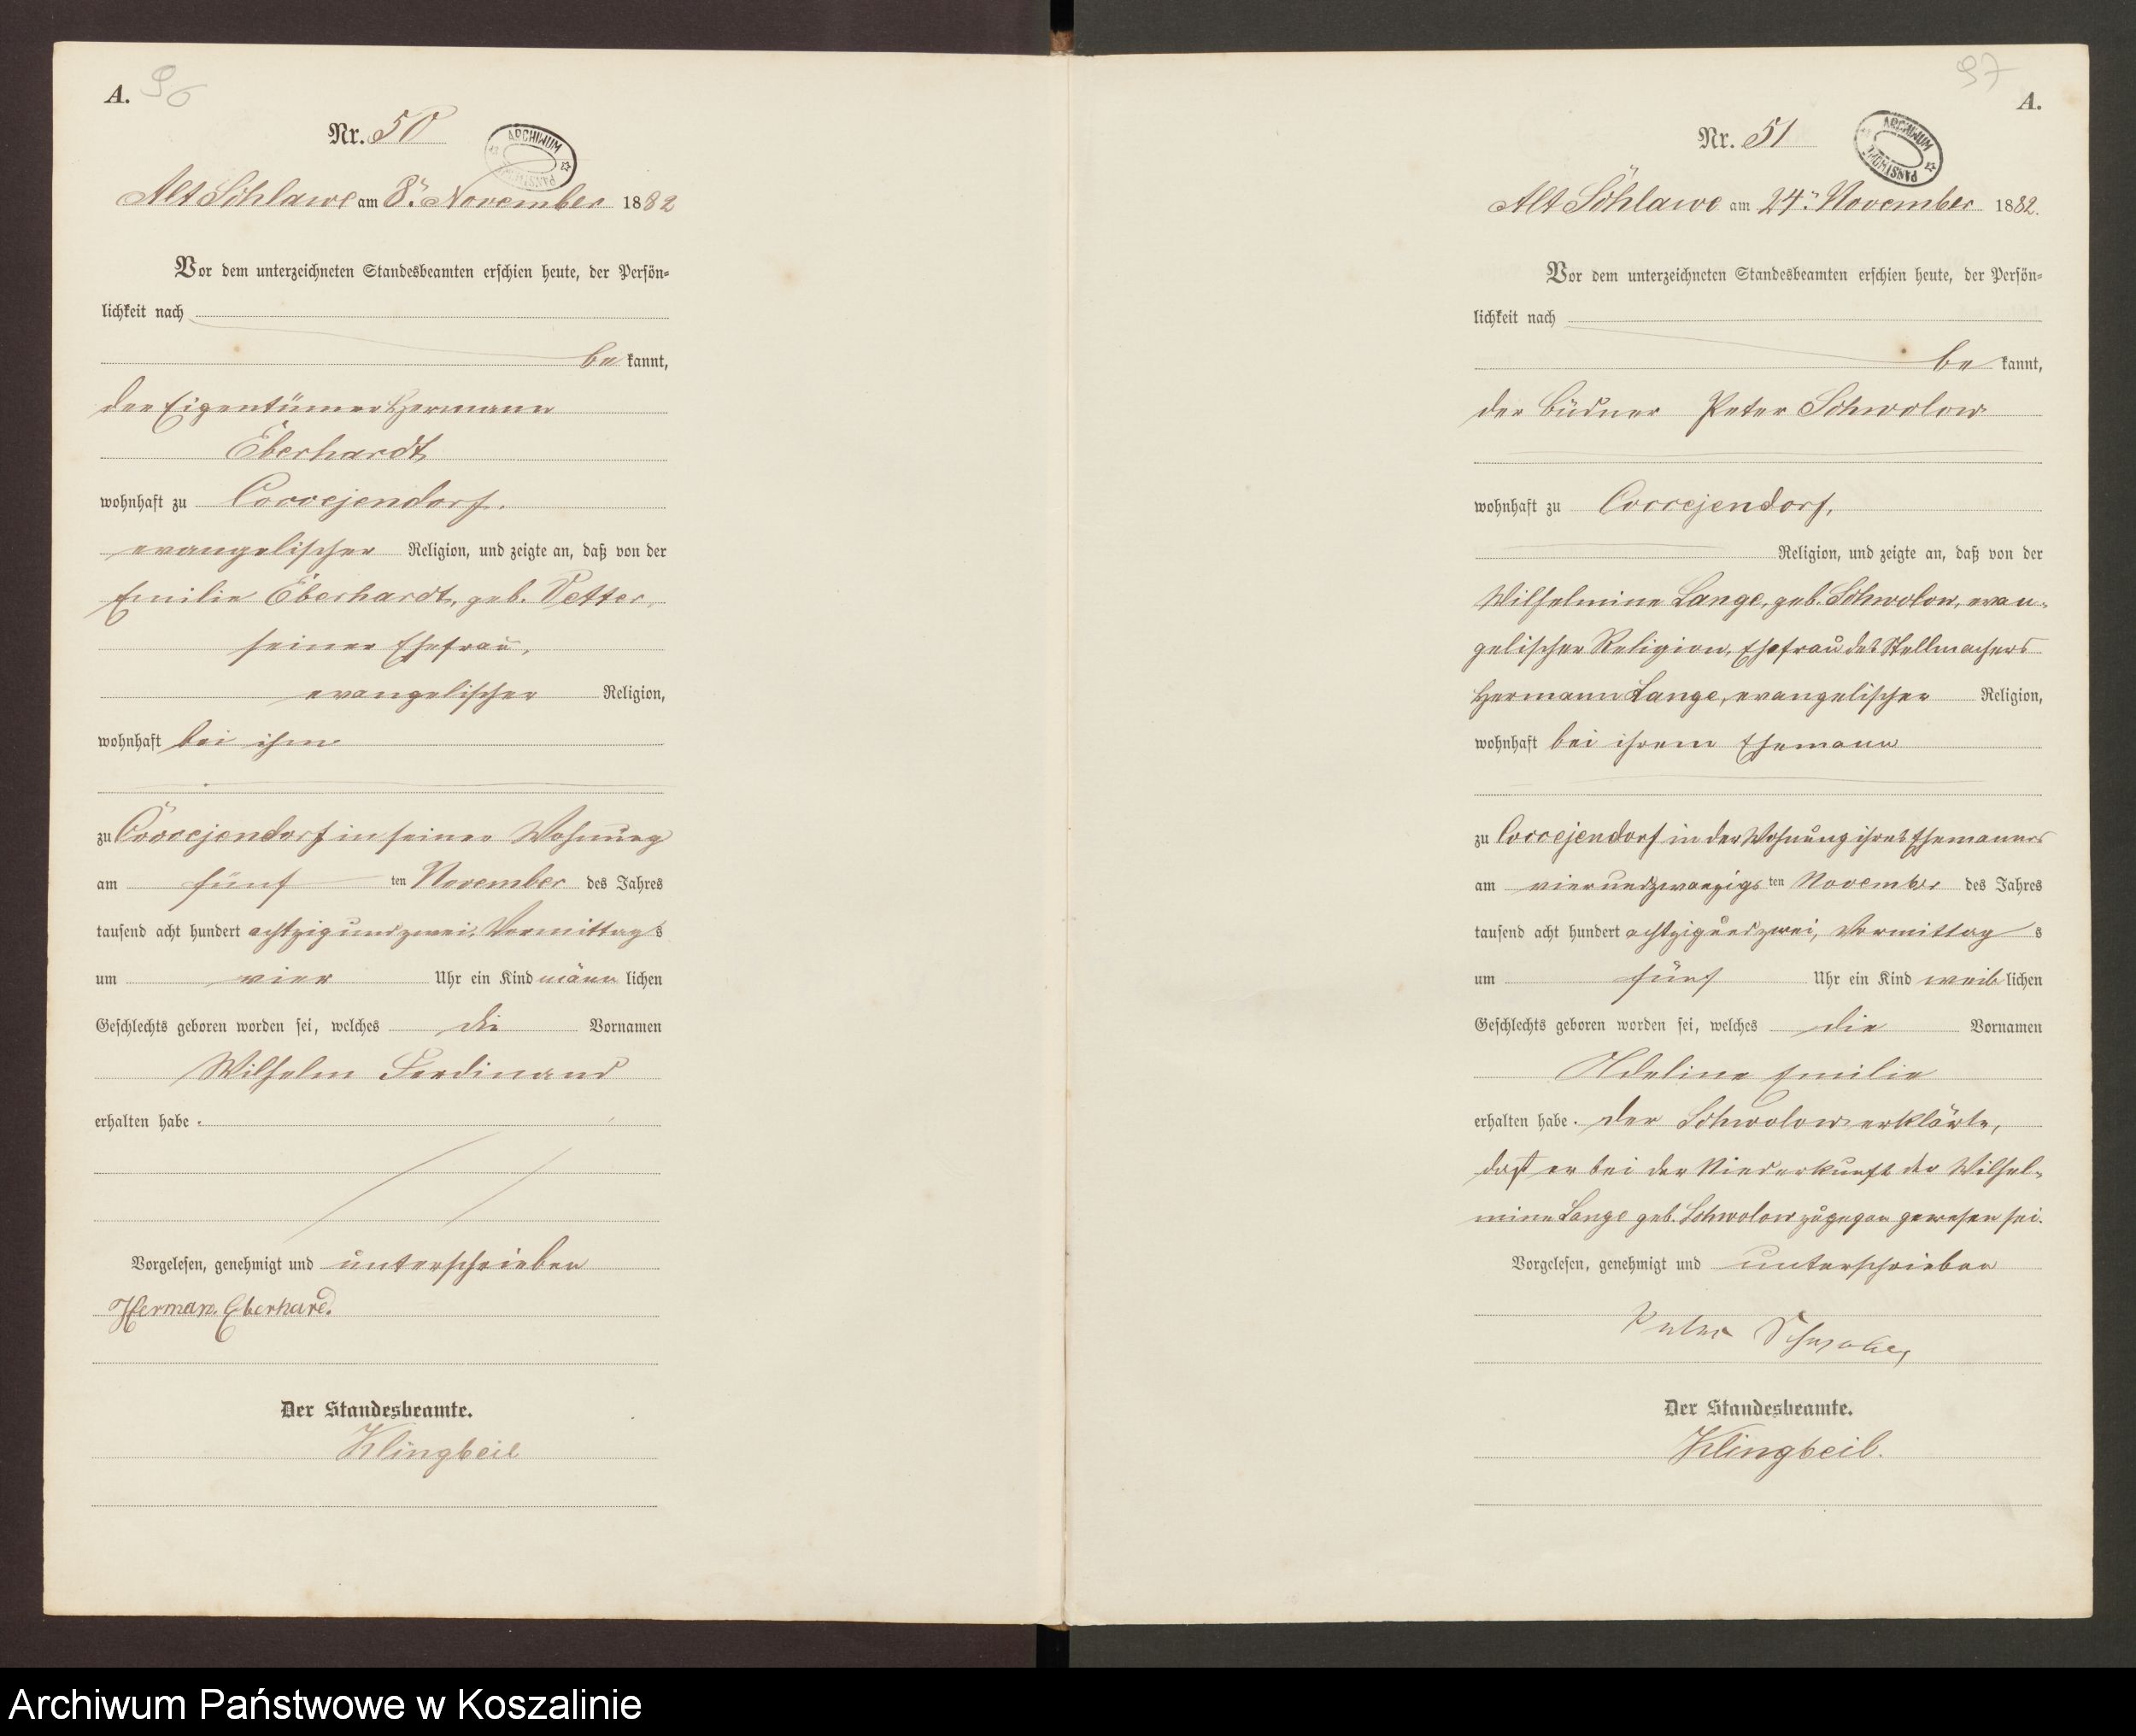 A. 96
Nr. 50
ARCHIWUM PAŃSTWOWE
Alt Schlawe am 8. November 1882
Vor dem unterzeichneten Standesbeamten erschien heute, der Persön=
lichkeit nach
be kannt,
der Eigentümer Hermann
Eberhardt
wohnhaft zu Correjendorf,
evangelischer Religion, und zeigte an, daß von der
Emilie Eberhardt, geb. Vetter,
seiner Ehefrau,
evangelischer Religion,
wohnhaft bei ihm
zu Correjendorf in seiner Wohnung
am fünf ten November des Jahres
tausend acht hundert achtzig und zwei, Vormittag s
um vier Uhr ein Kind männ lichen
Geschlechts geboren worden sei, welches die Vornamen
Wilhelm Ferdinand
erhalten habe.
Vorgelesen, genehmigt und unterschrieben
Herman. Eberhard.
Der Standesbeamte.
Klingbeil
97
A.
Nr. 51
ARCHIWUM PAŃSTWOWE
Alt Schlawe am 24. November 1882.
Vor dem unterzeichneten Standesbeamten erschien heute, der Persön=
lichkeit nach
be kannt,
der Büdner Peter Schwolow
wohnhaft zu Correjendorf,
Religion, und zeigte an, daß von der
Wilhelmine Lange, geb. Schwolow, evan-
gelischer Religion, Ehefrau des Stellmachers
Hermann Lange, evangelischer Religion,
wohnhaft bei ihrem Ehemann
zu Correjendorf in der Wohnung ihres Ehemannes
am vierundzwanzigs ten November des Jahres
tausend acht hundert achtzig und zwei, Vormittag s
um fünf Uhr ein Kind weib lichen
Geschlechts geboren worden sei, welches die Vornamen
Adeline Emilie
erhalten habe. Der Schwolow erklärte,
daß er bei der Niederkunft der Wilhel-
mine Lange geb. Schwolow zugegen gewesen sei.
Vorgelesen, genehmigt und unterschrieben
Peter
Der Standesbeamte.
Klingbeil.
Archiwum Państwowe w Koszalinie